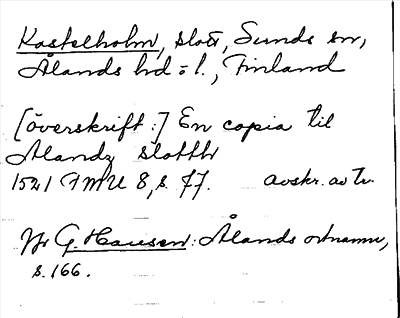 Kastelholm, slott, Sunds sn,
Ålands hd o l., Finland
[överskrift:] En copia til
Ålandz slotth
1521 FMU 8, s. 77. avskr. av tr.
Jfr G. Hausen: Ålands ortnamn,
s. 166.